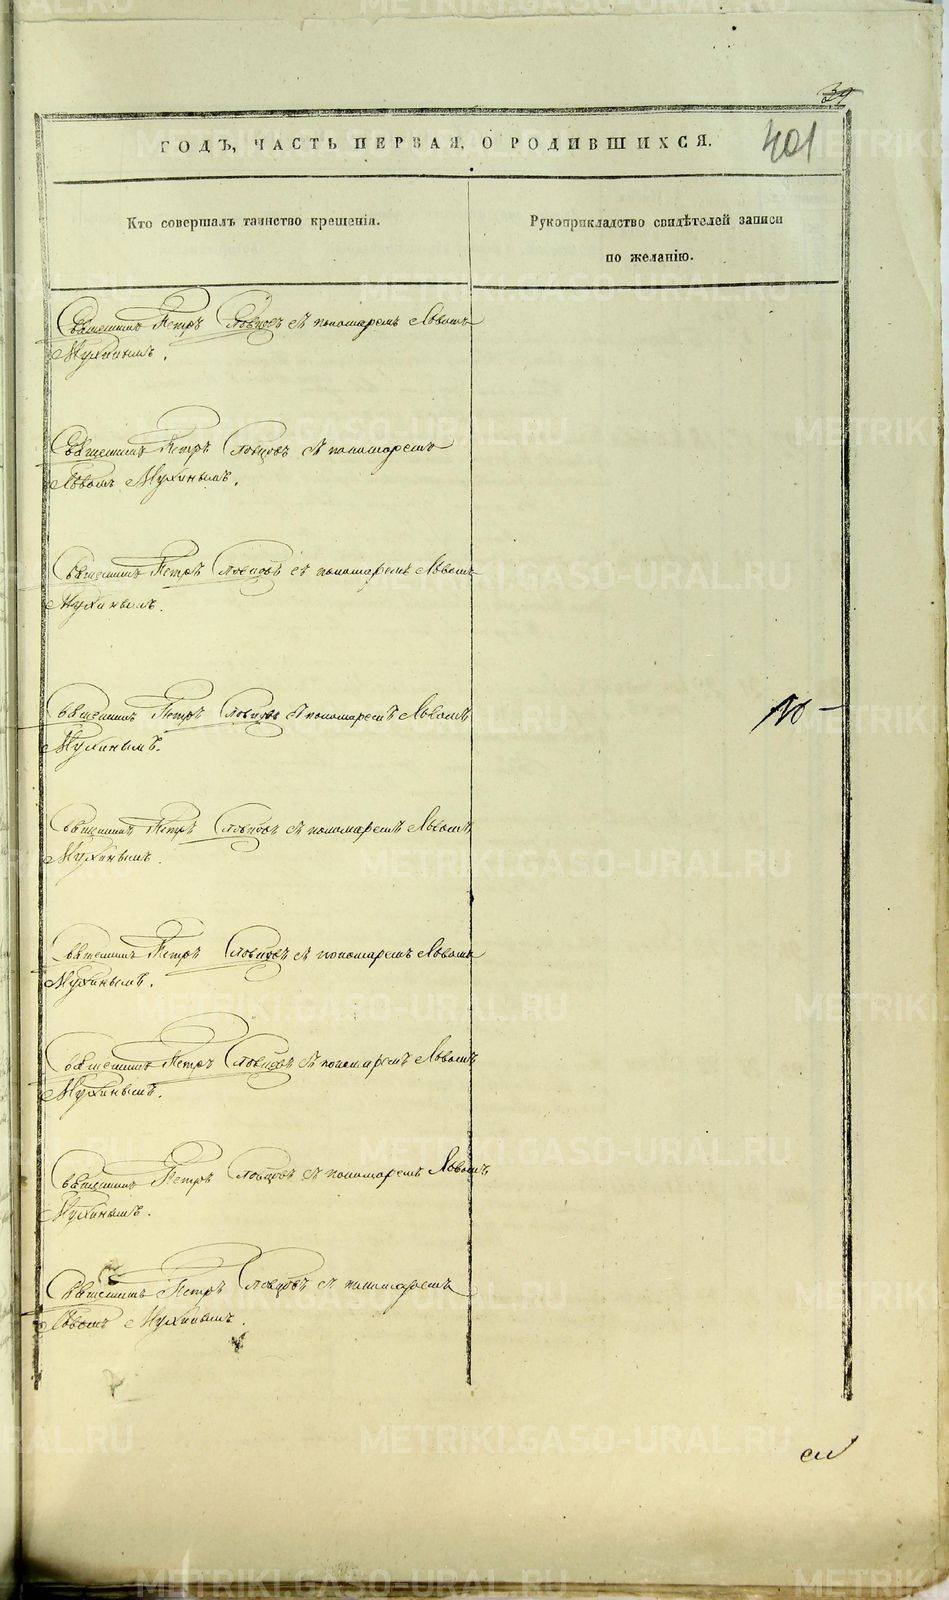 401
ГОДЪ, ЧАСТЬ ПЕРВАЯ, О РОДИВШИХСЯ.
Кто совершалъ таинство крещенія.
Рукоприкладство свидѣтелей записи
по желанію.
Священникъ Петръ Словцовъ съ пономаремъ Львомъ
Мухинымъ.
Священникъ Петръ Словцовъ съ пономаремъ
Львомъ Мухинымъ.
Священникъ Петръ Словцовъ съ пономаремъ Львомъ
Мухинымъ.
Священникъ Петръ Словцовъ съ пономаремъ Львомъ
Мухинымъ.
Священникъ Петръ Словцовъ съ пономаремъ Львомъ
Мухинымъ.
Священникъ Петръ Словцовъ съ пономаремъ Львомъ
Мухинымъ.
Священникъ Петръ Словцовъ съ пономаремъ Львомъ
Мухинымъ.
Священникъ Петръ Словцовъ съ пономаремъ Львомъ
Мухинымъ.
Священникъ Петръ Словцовъ съ пономаремъ
Львомъ Мухинымъ.
METRIKI.GASO-URAL.RU